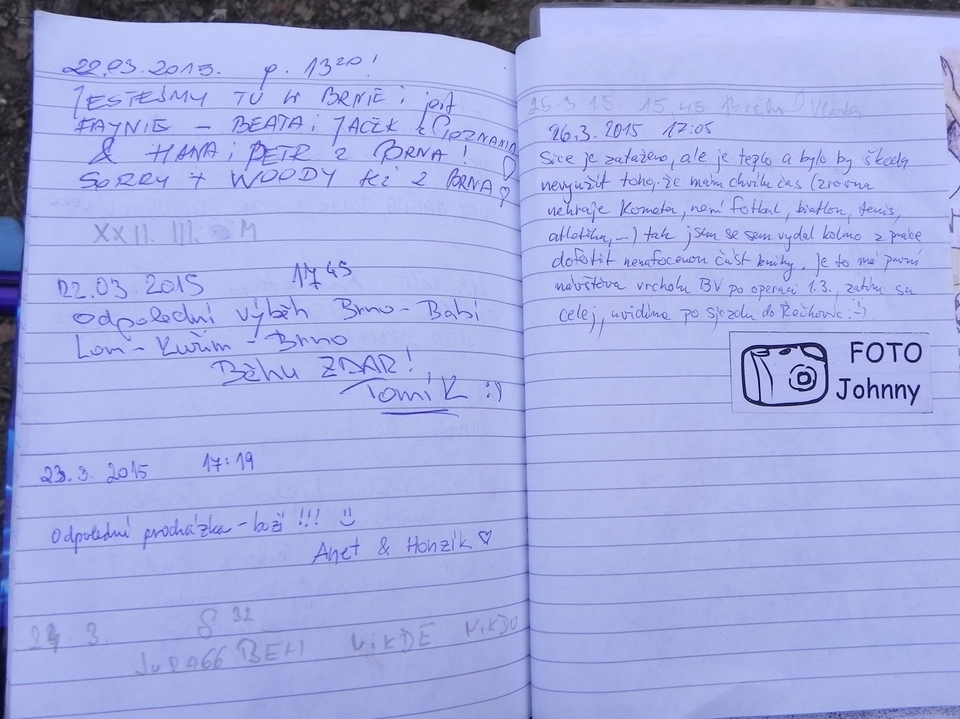 22.03.2015. g. 13²⁰!
JESTEŚMY TU W BRNIE i jest
FAYNIE – BEATA i JACEK z POZNANIA
& HANA i PETR z BRNA!
SORRY + WOODY też z BRNA ♡
XXII. III. M
22.03 2015 17⁴⁵
Odpolední výběh Brno-Babí
Lom-Kuřim-Brno
Běhu ZDAR!
TomiK :)
23.3. 2015 17:19
Odpolední procházka – boží !!!
Anet & Honzík ♡
24 3. 8 32
JUDA66 BĚH NIKDE NIKDO
25.3 15 15,45 Vlasta
26.3. 2015 17:05
Sice je zataženo, ale je teplo a bylo by škoda
nevyužít toho, že mám chvilu čas (zrovna
nehraje Kometa, není fotbal, biatlon, tenis,
atletika, ...) tak jsem se sem vydal kolmo z práce
dofotit nenafocenou část knihy. Je to má první
návštěva vrcholu BV po operaci 1.3., zatím su
celej, uvidíme po sjezdu do Řečkovic :-)
FOTO
Johnny